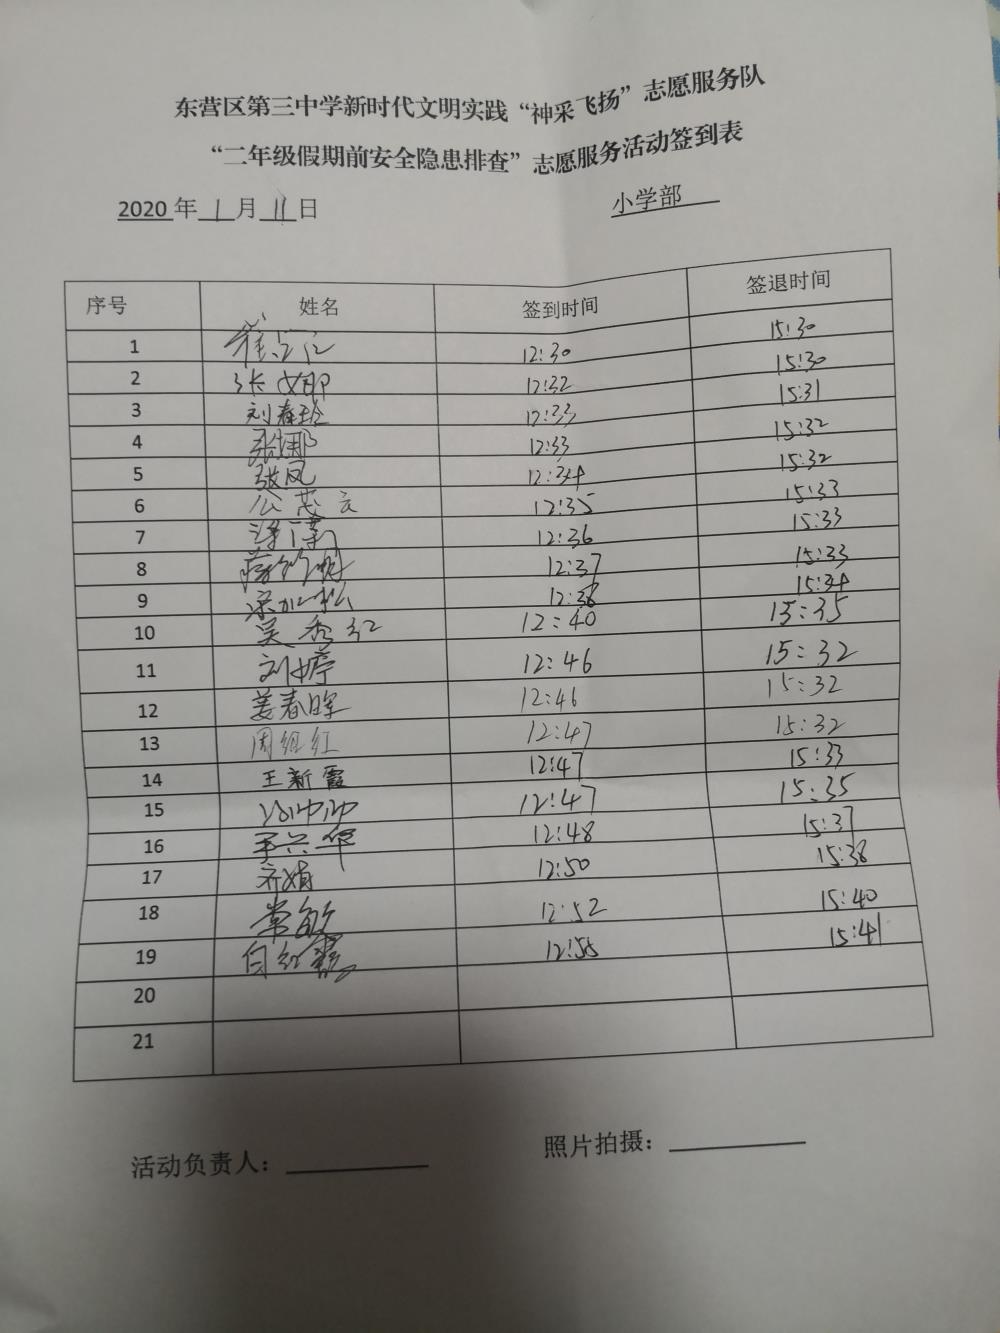 东营区第三中学新时代文明实践“神采飞扬”志愿服务队
“二年级假期前安全隐患排查”志愿服务活动签到表
2020年1月11日 小学部
序号 姓名 签到时间 签退时间
1 12:30 15:30
2 张文娜 12:32 15:30
3 刘春玲 12:33 15:31
4 张娜 12:33 15:32
5 张凤 12:34 15:32
6 公茂云 12:35 15:33
7 12:36 15:33
8 12:37 15:33
9 12:38 15:34
10 吴秀红 12:40 15:35
11 刘婷 12:46 15:32
12 姜春晖 12:46 15:32
13 周组红 12:47 15:32
14 王新霞 12:47 15:33
15 12:47 15:35
16 于兴华 12:48 15:37
17 齐娟 12:50 15:38
18 常敏 12:52 15:40
19 白红霞 12:55 15:41
20
21
活动负责人： 照片拍摄：